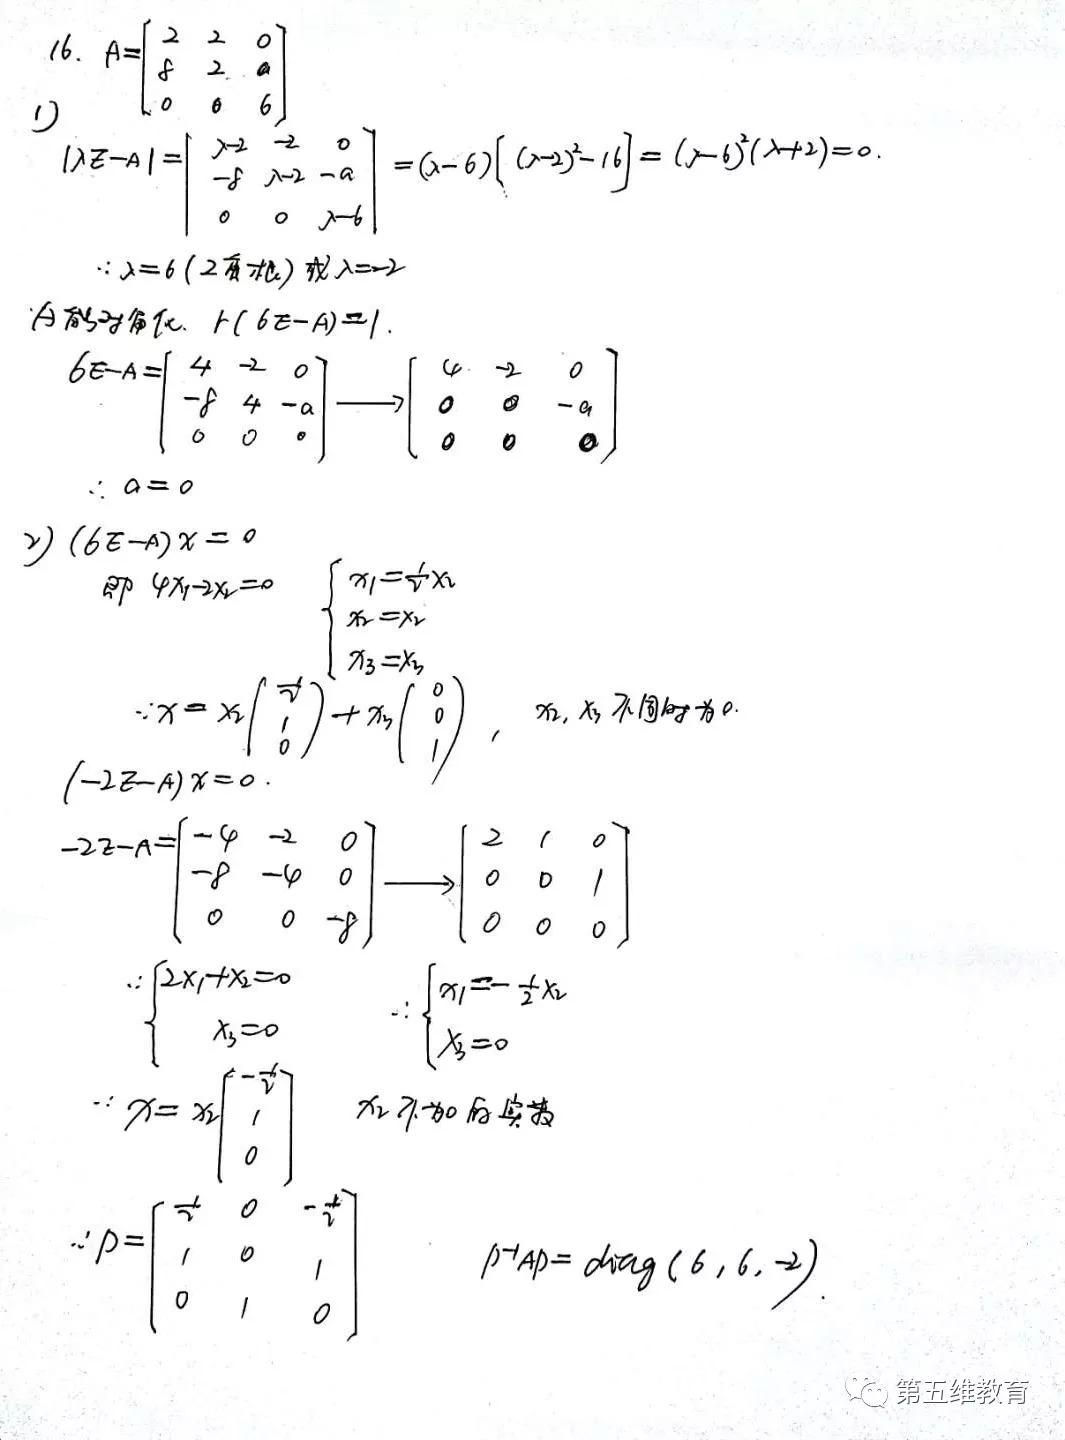 16. A=[2 2 0; 8 2 a; 0 0 6]
1)
|λE-A|=|λ-2 -2 0; -8 λ-2 -a; 0 0 λ-6|=(λ-6)[(λ-2)²-16]=(λ-6)²(λ+2)=0.
∴λ=6(2重根)或λ=-2
A能对角化. r(6E-A)=1.
6E-A=[4 -2 0; -8 4 -a; 0 0 0]→[4 -2 0; 0 0 -a; 0 0 0]
∴ a=0
2) (6E-A)x=0
即 4x₁-2x₂=0 {x₁=½x₂; x₂=x₂; x₃=x₃
∴x=x₂(½; 1; 0)+x₃(0; 0; 1), x₂, x₃不同时为0.
(-2E-A)x=0.
-2E-A=[-4 -2 0; -8 -4 0; 0 0 -8]→[2 1 0; 0 0 1; 0 0 0]
∴{2x₁+x₂=0; x₃=0 ∴{x₁=-½x₂; x₃=0
∴x=x₂[-½; 1; 0] x₂不为0的实数
∴P=[½ 0 -½; 1 0 1; 0 1 0] P⁻¹AP=diag(6,6,-2).
第五维教育